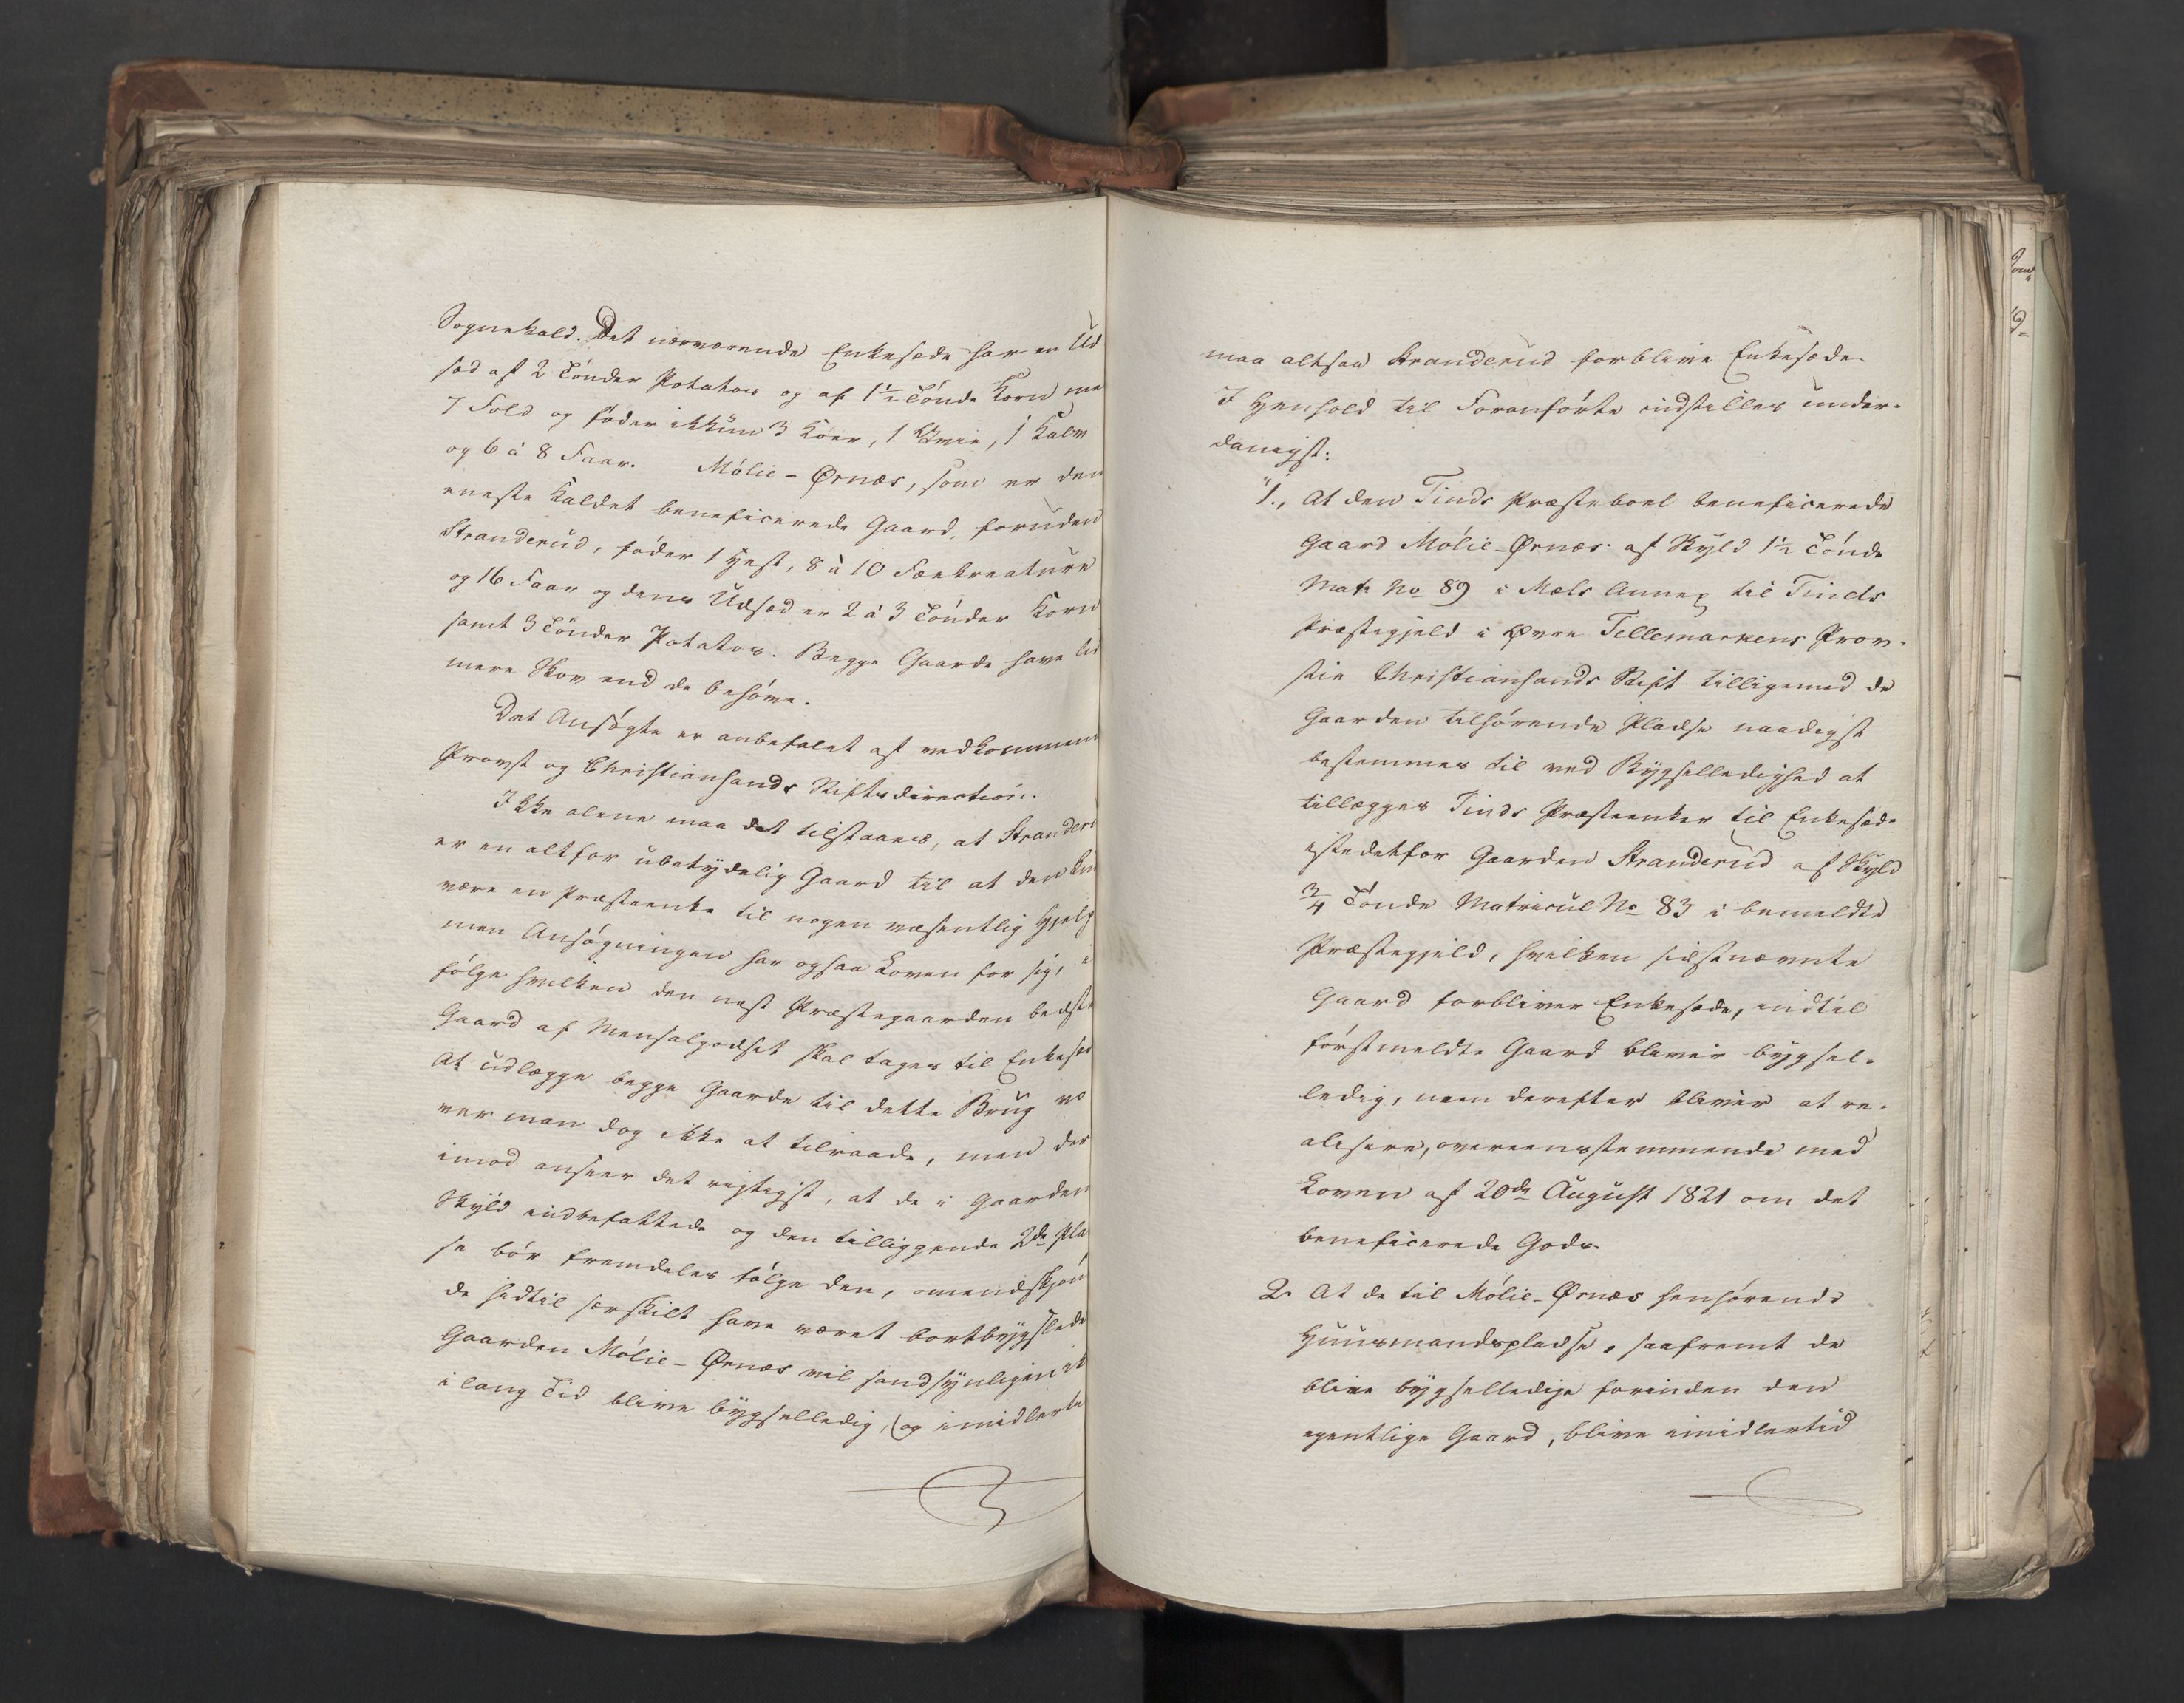 Sognekald. Det nærværende Enkesæde har en Ud
sæd af 2 Tönder Potatos og af 1½ Tönde Korn me
7 Fold og föder ikkun 3 Köer, 1 Qvie, 1 Kalv
og 6 à 8 Faar. Mölie-Ørnæs, som er den
eneste Kaldet beneficerede Gaard, foruden
Stranderud, föder 1 Hest, 8 à 10 Fækreature
og 16 Faar og dens Udsæd er 2 à 3 Tönder Korn
samt 3 Tönder Potatos. Begge Gaarde have lid
mere Skov end de behöve.
Det Ansögte er anbefalet af vedkommen
Provst og Christiansands Stiftsdirection.
Ikke alene maa det tilstaaes, at Strander
er en altfor ubetydelig Gaard til at den kun
være en Præsteenke til nogen væsentlig Hjelp
men Ansögningen har ogsaa Loven for sig, i
fölge hvilken den næst Præstegaarden bedste
Gaard af Mensalgodset skal tages til Enkesæd
At udlægge begge Gaarde til dette Brug vo
ver man dog ikke at tilraade, men der
imod anseer det rigtigst, at de i Gaarden
Skyld indbefattede og den tilliggende 2de Pla
se bör fremdeles fölge den, omendskjön
de hidtil særskilt have været bortbygslede
Gaarden Mölie-Ørnæs vil sandsynligviis
i lang Tid blive bygselledig, og imidlerti
maa altsaa Stranderud forblive Enkesæde.
I Henhold til Foranförte indstilles under-
danigst:
"1., At den Tinds Præsteboel beneficerede
Gaard Mölie-Ørnæs af Skyld 1½ Tönde
Mat. No 89 i Mæls Annex til Tinds
Præstegjeld i Øvre Tellemarkens Prov-
stie Christiansands Stift tilligemed de
Gaarden tilhörende Pladse naadigst
bestemmes til ved Bygselledighed at
tillægges Tinds Præsteenker til Enkesæde
istedetfor Gaarden Stranderud af Skyld
3/4 Tönde Matricul No 83 i bemeldte
Præstegjeld, hvilken sidstnævnte
Gaard forbliver Enkesæde, indtil
förstmeldte Gaard bliver bygsel-
ledig, men derefter bliver at re-
alisere, overeensstemmende med
Loven af 20de August 1821 om det
beneficerede Gods.
2. At de til Mölie-Ørnæs henhörende
Huusmandspladse, saafremt de
blive bygselledige forinden den
egentlige Gaard, blive imidlertid